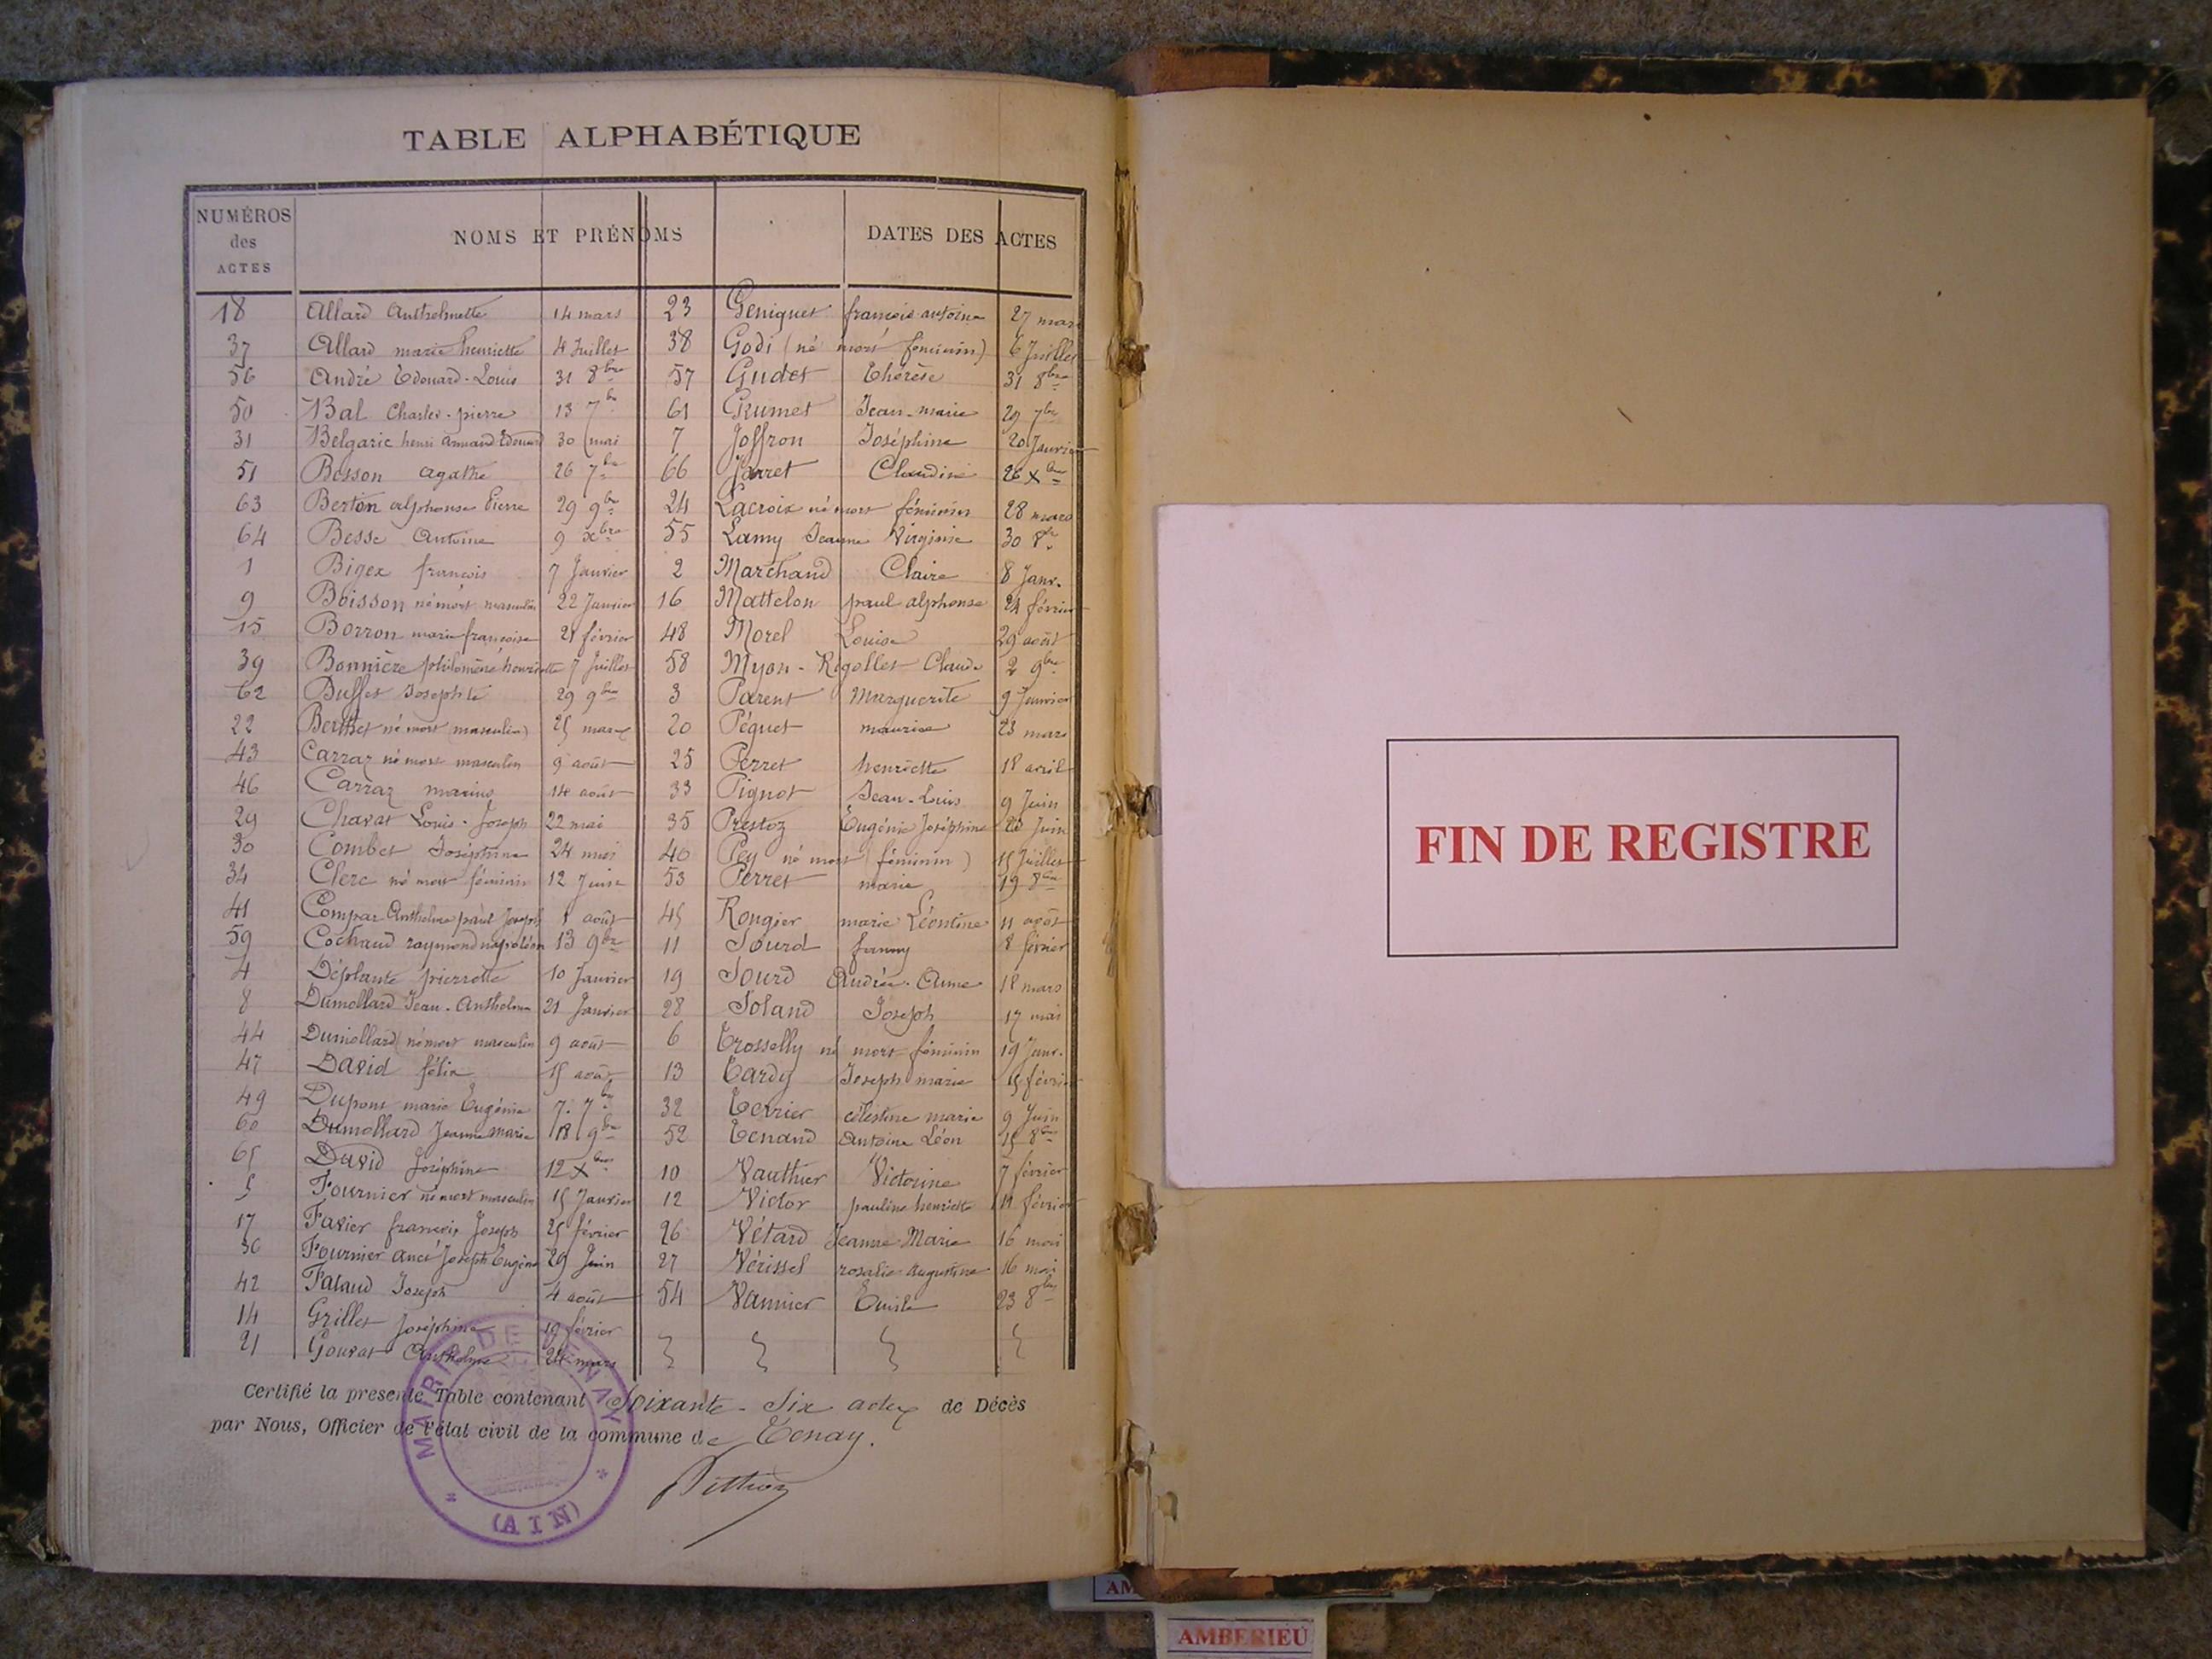 TABLE ALPHABÉTIQUE
NUMÉROS des ACTES
NOMS ET PRÉNOMS
DATES DES ACTES
18 Allard Anthelmette 14 mars
37 Allard marie henriette 4 Juillet
56 André Edouard-Louis 31 8bre
50 Bal Charles-pierre 13 7bre
31 Belgaric henri armand Edouard 30 mai
51 Besson agathe 26 7bre
63 Berton alphonse Pierre 29 9bre
64 Besse Antoine 9 xbre
1 Bigex françois 7 Janvier
9 Boisson né mort masculin 22 Janvier
15 Borron marie françoise 21 février
39 Bonnière philomène henriette 7 Juillet
62 Buffet Josephte 29 9bre
22 Berthet né mort (masculin) 25 mars
43 Carraz né mort masculin 9 août
46 Carraz marius 14 août
29 Chavat Louis-Joseph 22 mai
30 Combet Joséphine 24 mai
34 Clerc né mort féminin 12 Juin
41 Compar Anthelme paul Joseph 1 août
59 Cochaud raymond napoléon 13 9bre
4 Déplante pierrette 10 Janvier
8 Dumollard Jean-Anthelme 21 Janvier
44 Dumollard (né mort masculin 9 août
47 David félix 15 août
49 Dupont marie Eugénie 7. 7bre
60 Dumollard Jeanne marie 18 9bre
65 David Joséphine 12 Xbre
5 Fournier né mort masculin 15 Janvier
17 Favier françois Joseph 25 février
36 Fournier ancé Joseph Eugène 29 Juin
42 Falaud Joseph 4 août
14 Grillet Joséphine 19 février
21 Gouvat Anthelme 24 mars
23 Geniquet françois antoine 27 mars
38 Godi (né mort féminin) 6 Juillet
57 Gudet Thérèse 31 8bre
61 Grumet Jean-marie 29 7bre
7 Joffron Joséphine 20 Janvier
66 Jarret Claudine 26 Xbre
24 Lacroix né mort féminin 28 mars
55 Lamy Jeanne Virginie 30 8bre
2 Marchand Claire 8 Janv.
16 Mattelon paul alphonse 24 février
48 Morel Louise 29 août
58 Myon-Rigollet Claude 2 9bre
3 Parent Marguerite 9 Janvier
20 Péguet maurice 23 mars
25 Perret henriette 18 avril
33 Pignot Jean-Louis 9 Juin
35 Prestoz Eugénie Joséphine 20 Juin
40 Pey né mort (féminin) 15 Juillet
53 Perret marie 19 8bre
45 Rongier marie Léontine 11 août
11 Sourd fanny 8 février
19 Sourd Andrée-Anne 18 mars
28 Soland Joseph 17 mai
6 Trosselly né mort féminin 19 Janv.
13 Tardy Joseph marie 15 février
32 Terrier célestine marie 9 Juin
52 Tenand Antoine Léon 15 8bre
10 Vauthier Victorine 7 février
12 Victor pauline henriette 14 février
26 Vétard Jeanne Marie 16 mai
27 Vérissel rosalie Augustine 16 mai
54 Vannier Emile 23 8bre
Certifié la presente Table contenant Soixante-Six actes de Décès
par Nous, Officier de l'état civil de la commune de Tenay.
MAIRIE DE TENAY
(AIN)
FIN DE REGISTRE
AM
AMBERIEU